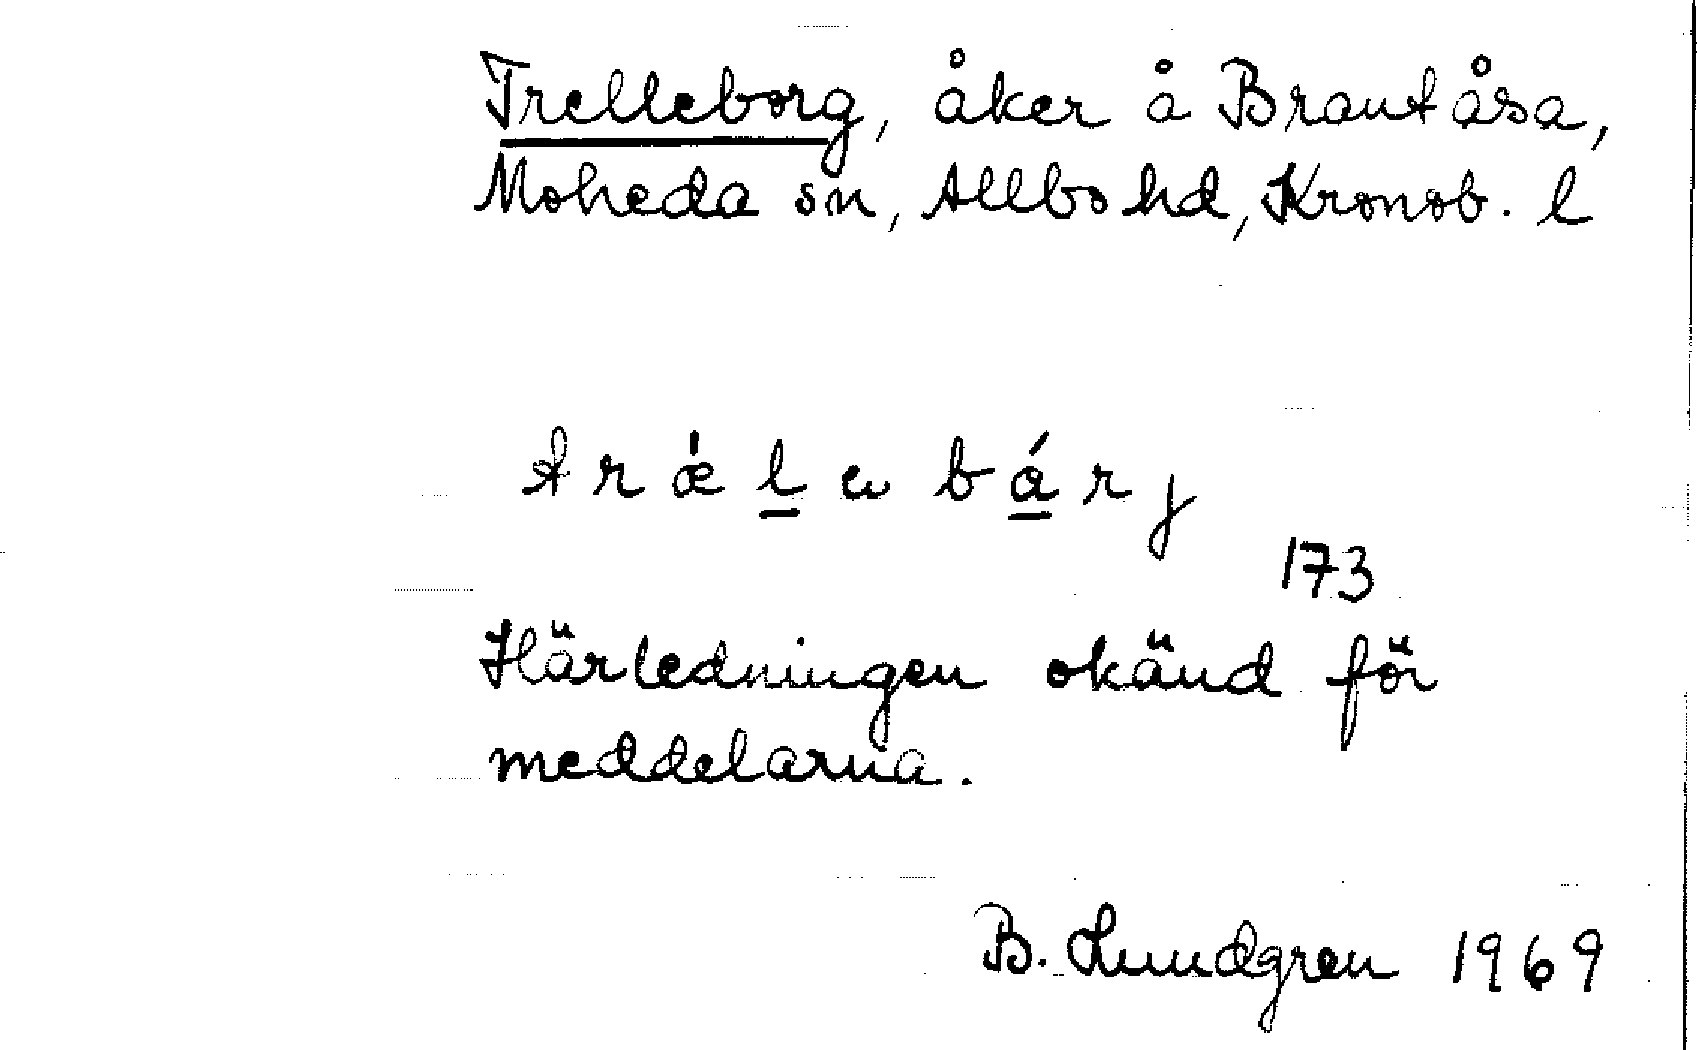 Trelleborg, åker å Brantåsa,
Moheda sn, Allbo hd, Kronob. l
t r ǽ l̲ ω b á̲ r j
173
Härledningen okänd för
meddelarna.
B. Lundgren 1969